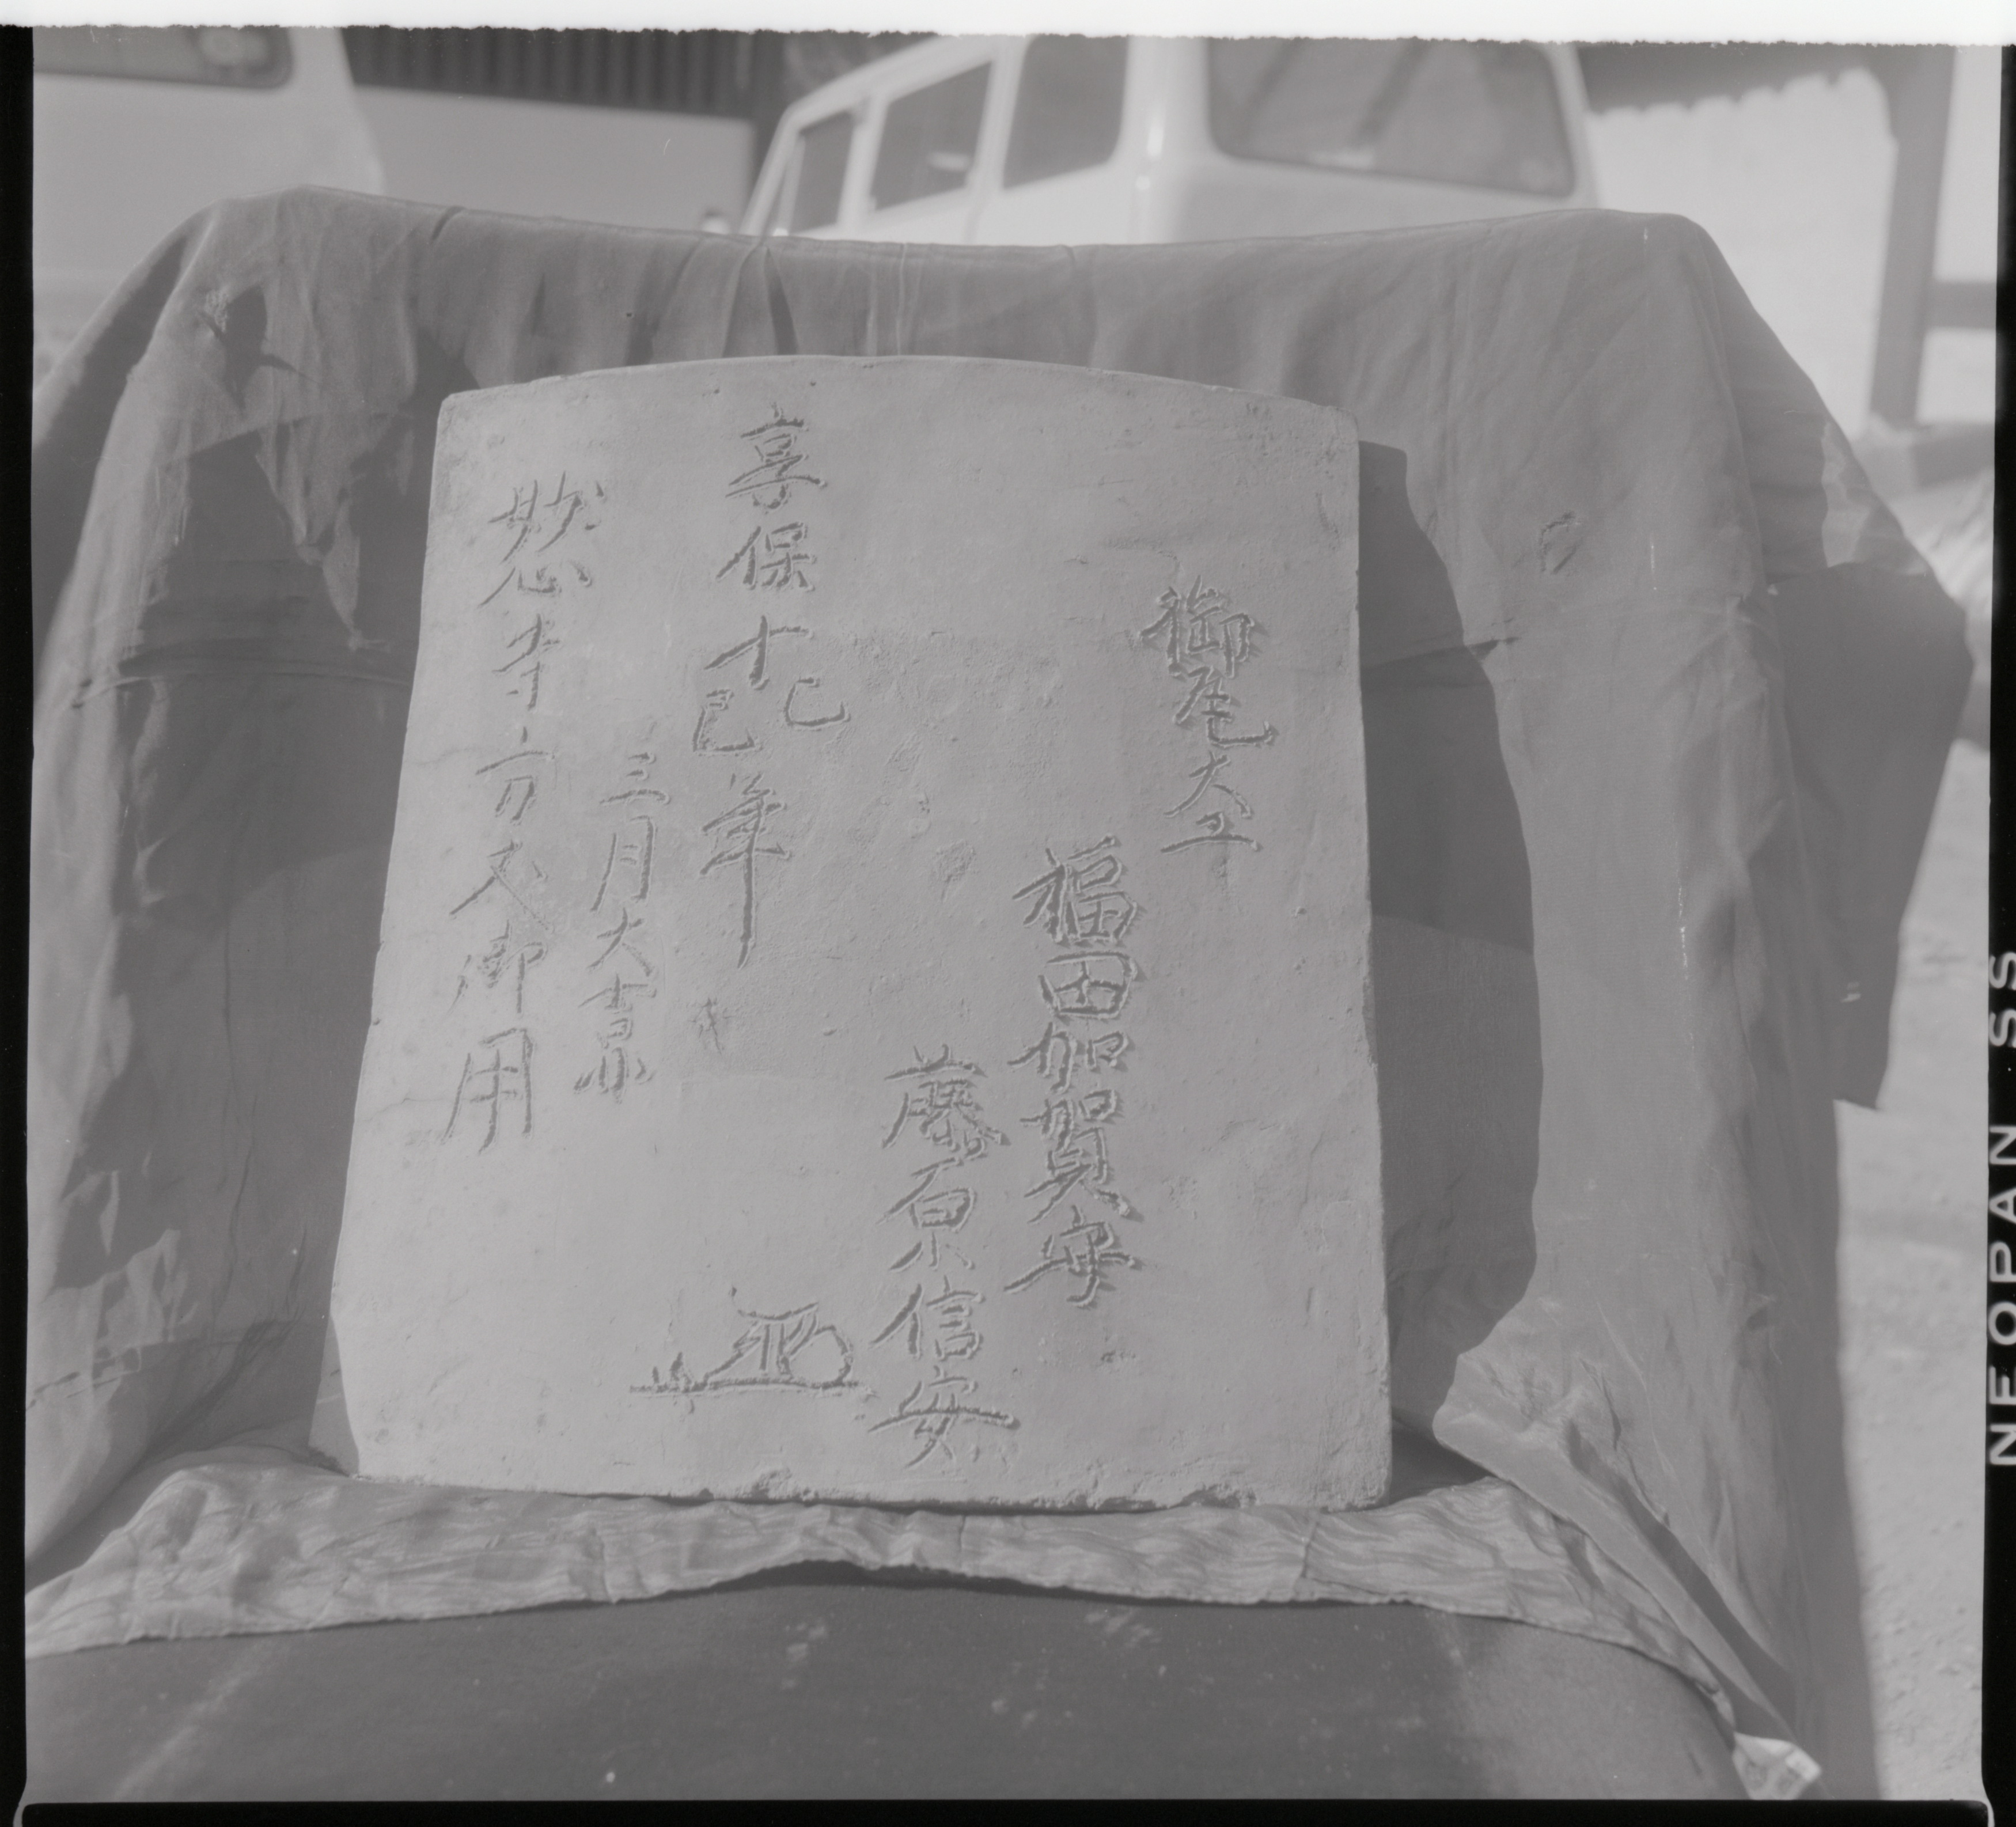 御瓦大工
福田加賀守
藤原信安
享保十乙巳年
三月大吉
妙心寺方丈御用
NEOPAN SS